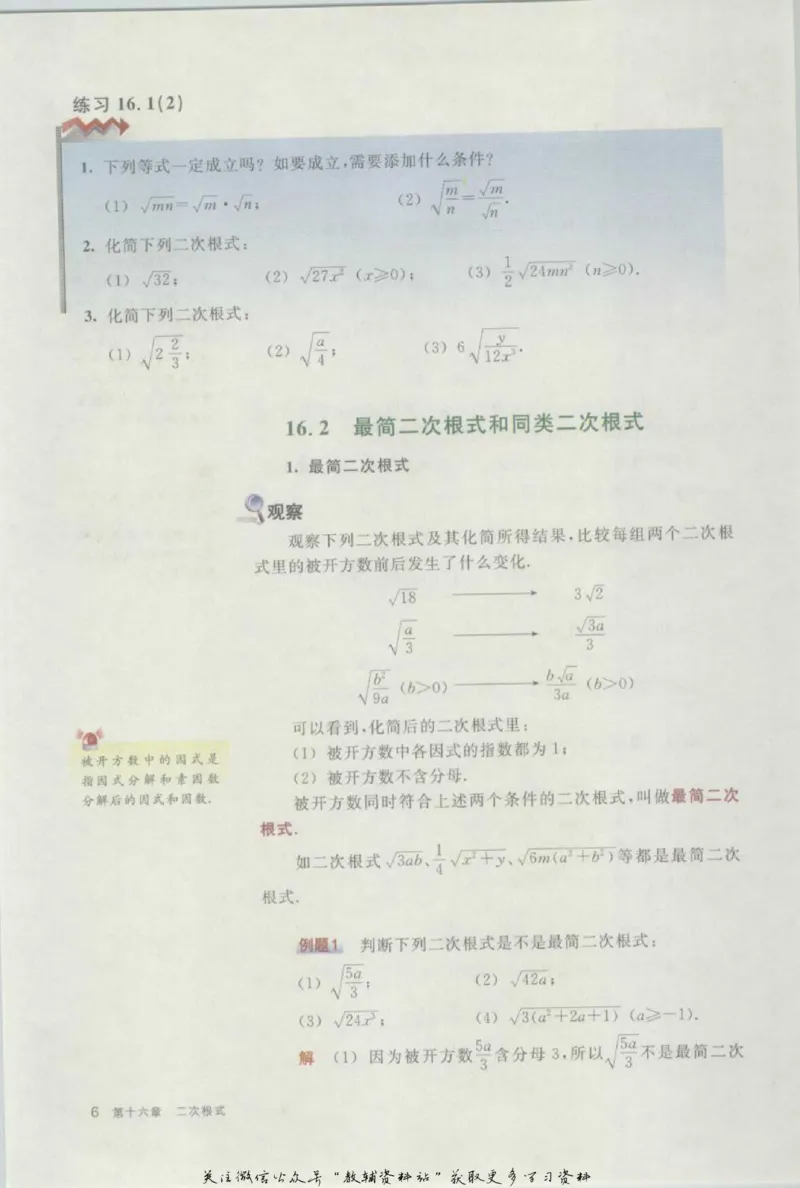 练习 16.1(2)
1. 下列等式一定成立吗？如要成立,需要添加什么条件？
(1) √mn=√m·√n; (2) √(m/n)=√m/√n.
2. 化简下列二次根式:
(1) √32; (2) √27x² (x≥0); (3) 1/2 √24mn² (n≥0).
3. 化简下列二次根式:
(1) √(2 2/3); (2) √(a/4); (3) 6√(y/12x³).
16.2 最简二次根式和同类二次根式
1. 最简二次根式
观察
观察下列二次根式及其化简所得结果,比较每组两个二次根
式里的被开方数前后发生了什么变化.
√18 → 3√2
√(a/3) → √3a/3
√(b²/9a) (b>0) → b√a/3a (b>0)
可以看到,化简后的二次根式里:
(1) 被开方数中各因式的指数都为 1;
(2) 被开方数不含分母.
被开方数中的因式是
指因式分解和素因数
分解后的因式和因数.
被开方数同时符合上述两个条件的二次根式,叫做最简二次
根式.
如二次根式 √3ab、1/4 √(x²+y)、√(6m(a²+b²))等都是最简二次
根式.
例题1 判断下列二次根式是不是最简二次根式:
(1) √(5a/3); (2) √42a;
(3) √24x³; (4) √(3(a²+2a+1)) (a≥-1).
解 (1) 因为被开方数5a/3含分母 3,所以√(5a/3)不是最简二次
6 第十六章 二次根式
关注微信公众号“教辅资料站”获取更多学习资料